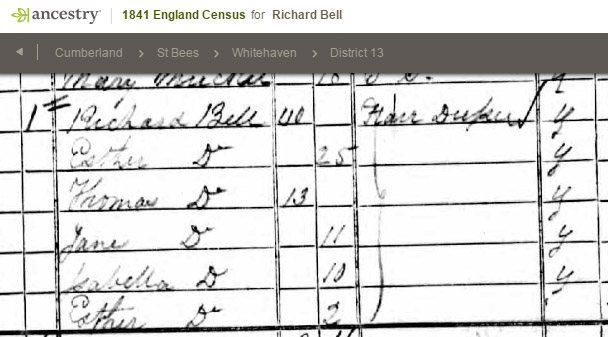 ancestry 1841 England Census for Richard Bell
Cumberland > St Bees > Whitehaven > District 13
Mary
1 Richard Bell 40 Flax Dresser y
Esther Do 25 y
Thomas Do 13 y
Jane Do 11 y
Isabella Do 10 y
Esther Do 2